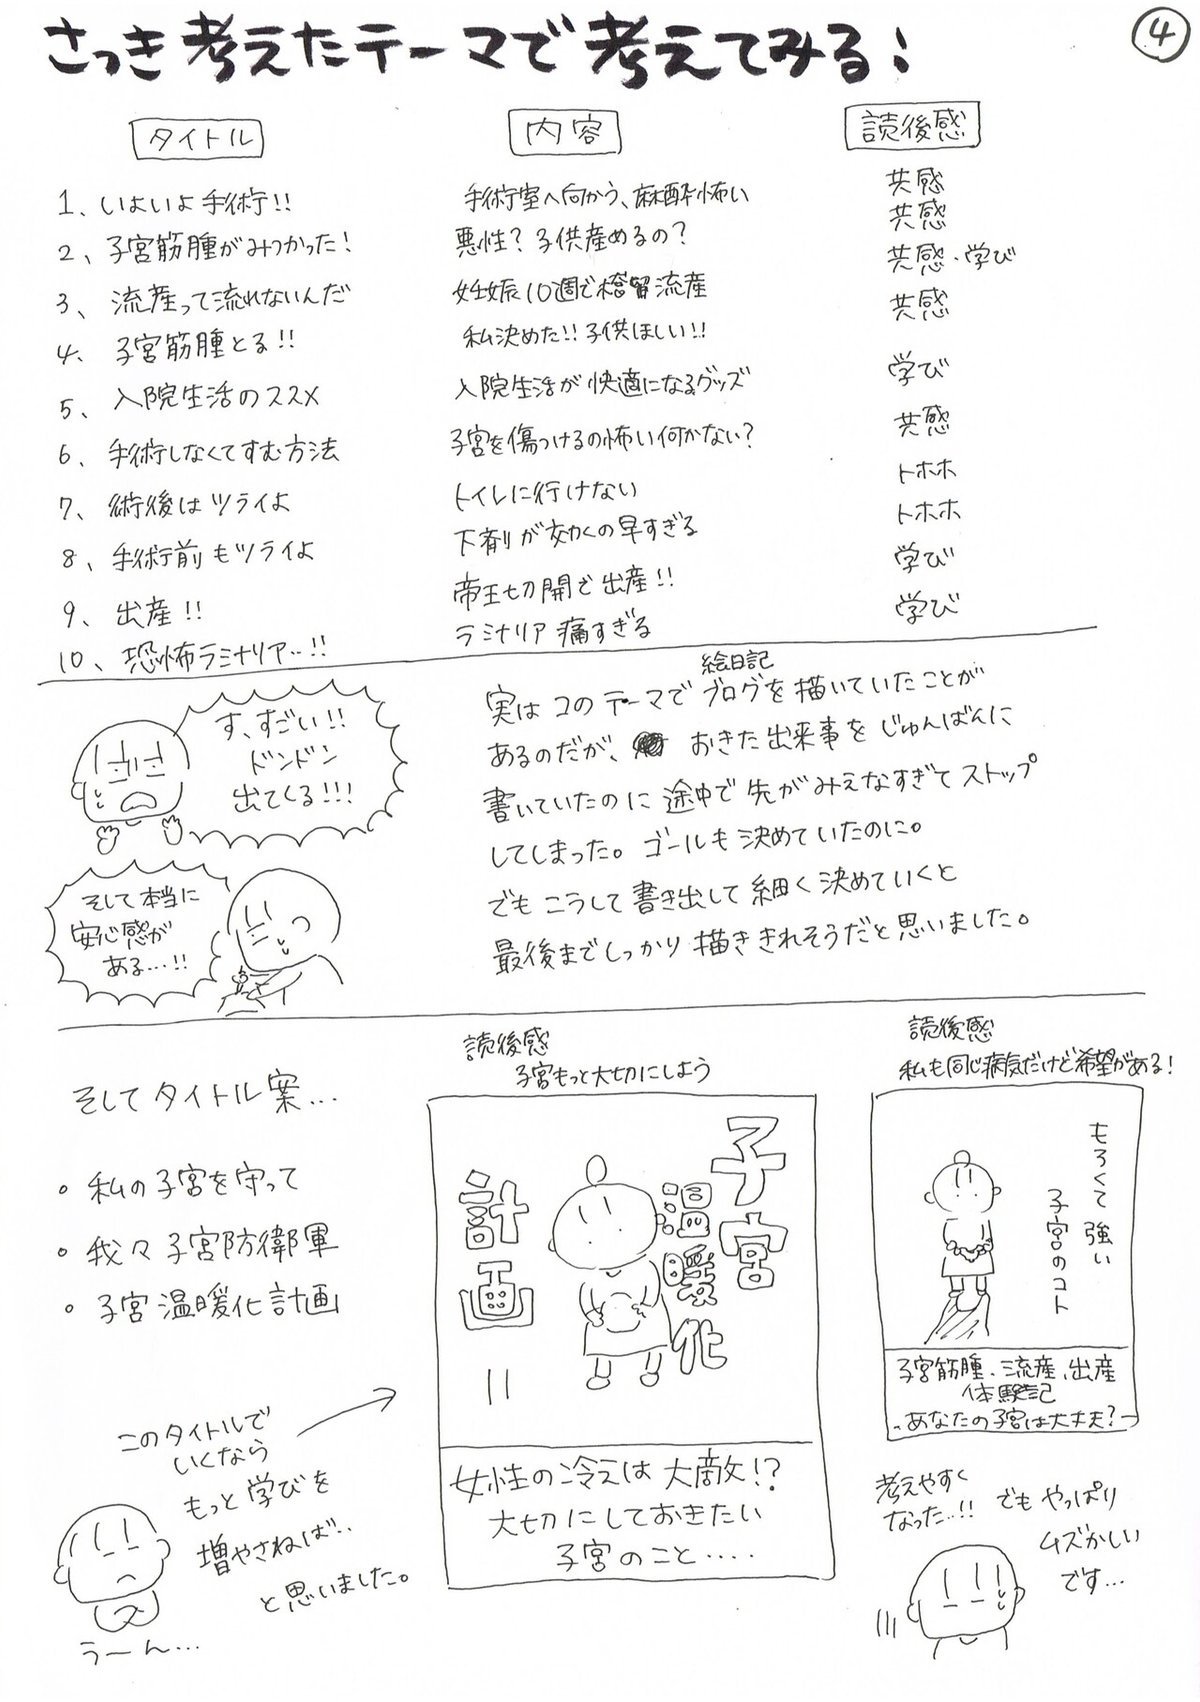 さっき考えたテーマで考えてみる!
④
タイトル
内容
読後感
1、いよいよ手術!!
手術室へ向かう、麻酔怖い
共感
2、子宮筋腫がみつかった!
悪性?子供産めるの?
共感
3、流産って流れないんだ
妊娠10週で稽留流産
共感・学び
4、子宮筋腫とる!!
私決めた!!子供ほしい!!
共感
5、入院生活のススメ
入院生活が快適になるグッズ
学び
6、手術しなくてすむ方法
子宮を傷つけるの怖い何かない?
共感
7、術後はツライよ
トイレに行けない
トホホ
8、手術前もツライよ
下剤が効くの早すぎる
トホホ
9、出産!!
帝王切開で出産!!
学び
10、恐怖ラミナリア‥!!
ラミナリア痛すぎる
学び
す、すごい!!
ドンドン
出てくる!!!
そして本当に
安心感が
ある…!!
絵日記
実はコのテーマでブログを描いていたことが
あるのだが、おきた出来事をじゅんばんに
書いていたのに途中で先がみえなすぎてストップ
してしまった。ゴールも決めていたのに。
でもこうして書き出して細く決めていくと
最後までしっかり描ききれそうだと思いました。
そしてタイトル案…
・私の子宮を守って
・我々子宮防衛軍
・子宮温暖化計画
このタイトルで
いくなら
もっと学びを
増やさねば‥
と思いました。
うーん…
読後感
子宮もっと大切にしよう
子宮
温暖化
計画
女性の冷えは大敵!?
大切にしておきたい
子宮のこと‥‥
読後感
私も同じ病気だけど希望がある!
もろくて強い
子宮のコト
子宮筋腫、流産、出産
体験記
-あなたの子宮は大丈夫?-
考えやすく
なった‥!!
でもやっぱり
ムズかしい
です…